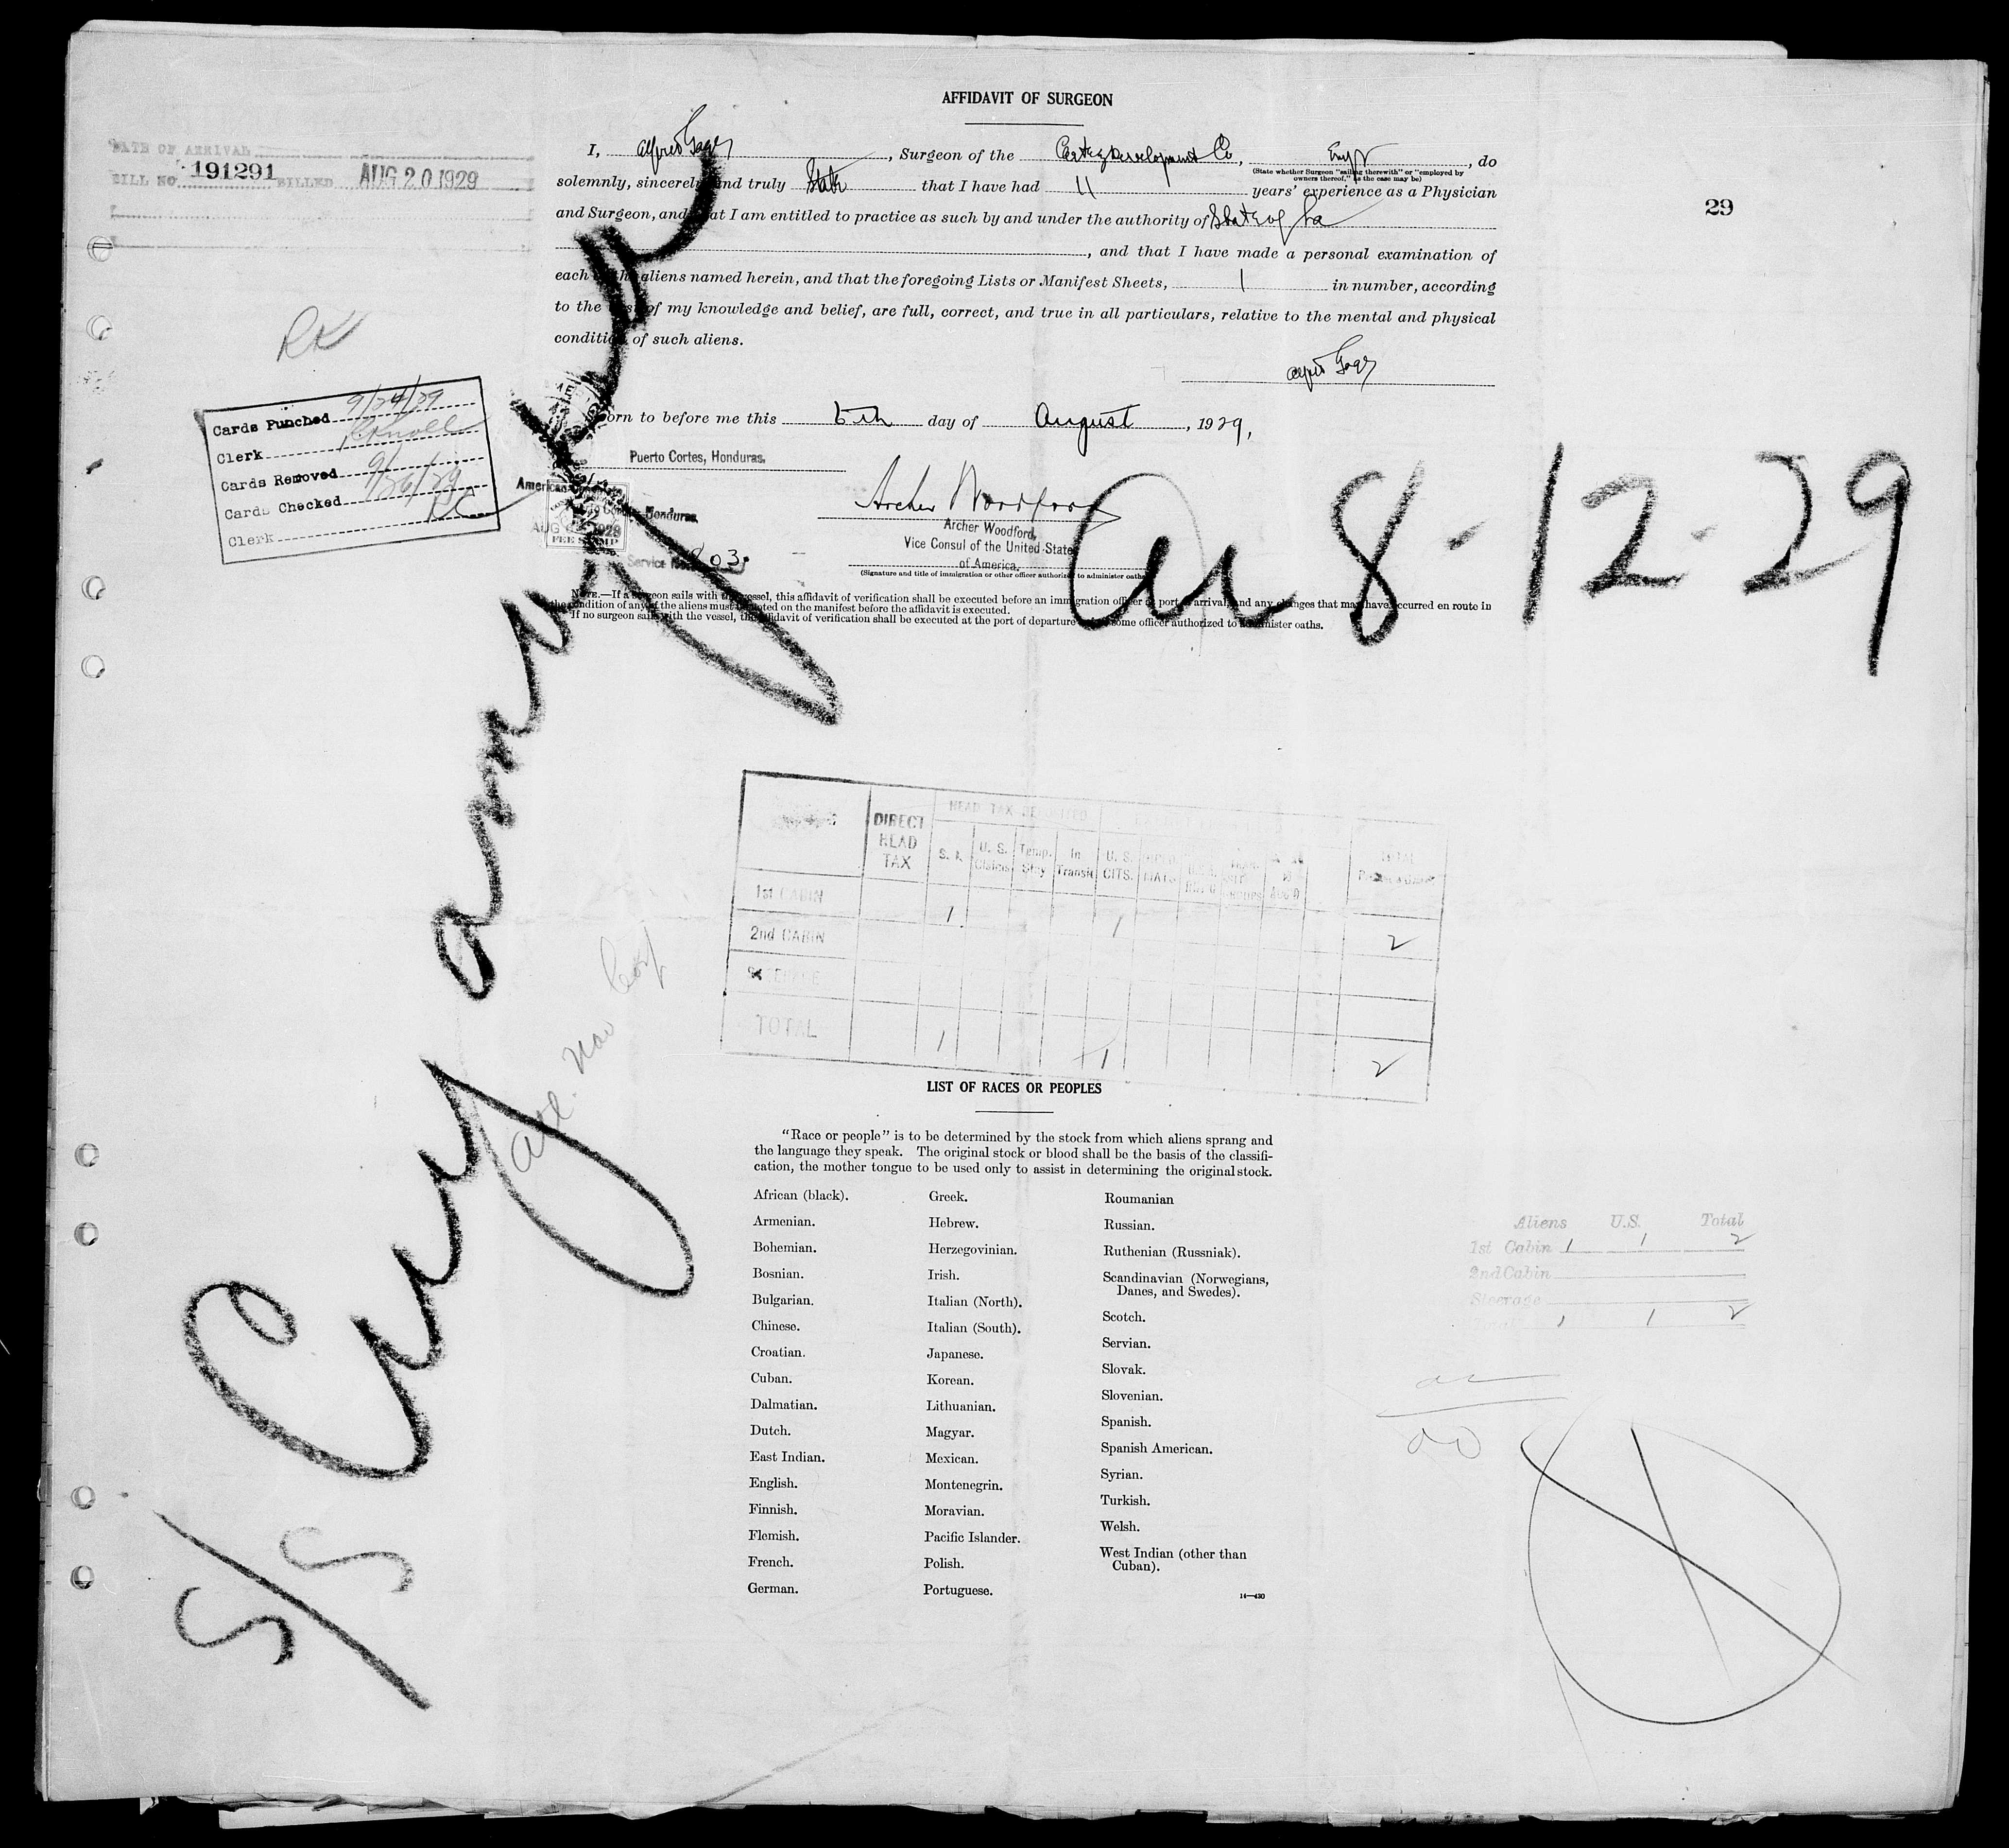 AFFIDAVIT OF SURGEON
DATE OF ARRIVAL
BILL NO. 191291 BILLED AUG 20 1929
29
I, Alfred, Surgeon of the Cortez Development Co, , do
(State whether Surgeon "sailing therewith" or "employed by owners thereof," as the case may be)
solemnly, sincerely and truly State that I have had 11 years' experience as a Physician
and Surgeon, and that I am entitled to practice as such by and under the authority of State of La
, and that I have made a personal examination of
each of the aliens named herein, and that the foregoing Lists or Manifest Sheets, 1 in number, according
to the best of my knowledge and belief, are full, correct, and true in all particulars, relative to the mental and physical
condition of such aliens.
Alfred
Sworn to before me this 5th day of August, 1929,
Puerto Cortes, Honduras.
American Consulate
Puerto Cortes, Honduras.
AUG 1929
FEE STAMP
Service No. 803
Archer Woodford
Archer Woodford,
Vice Consul of the United State
of America.
(Signature and title of immigration or other officer authorized to administer oaths
NOTE.—If a surgeon sails with the vessel, this affidavit of verification shall be executed before an immigration officer at port of arrival, and any changes that may have occurred en route in
the condition of any of the aliens must be noted on the manifest before the affidavit is executed.
If no surgeon sails with the vessel, the affidavit of verification shall be executed at the port of departure before some officer authorized to administer oaths.
RK
Cards Punched 9/24/29
Clerk
Cards Removed
Cards Checked 9/26/29
Clerk
8-12-29
S/S Cuyamapa
Atl. Nav Corp
DIRECT HEAD TAX
HEAD TAX DEPOSITED
U. S. Claims
Temp. Stay
In Transit
U. S. CITS.
TOTAL
1st CABIN 1 1 2
2nd CABIN
TOTAL 1 1 2
LIST OF RACES OR PEOPLES
"Race or people" is to be determined by the stock from which aliens sprang and
the language they speak. The original stock or blood shall be the basis of the classifi-
cation, the mother tongue to be used only to assist in determining the original stock.
African (black).
Armenian.
Bohemian.
Bosnian.
Bulgarian.
Chinese.
Croatian.
Cuban.
Dalmatian.
Dutch.
East Indian.
English.
Finnish.
Flemish.
French.
German.
Greek.
Hebrew.
Herzegovinian.
Irish.
Italian (North).
Italian (South).
Japanese.
Korean.
Lithuanian.
Magyar.
Mexican.
Montenegrin.
Moravian.
Pacific Islander.
Polish.
Portuguese.
Roumanian
Russian.
Ruthenian (Russniak).
Scandinavian (Norwegians,
Danes, and Swedes).
Scotch.
Servian.
Slovak.
Slovenian.
Spanish.
Spanish American.
Syrian.
Turkish.
Welsh.
West Indian (other than
Cuban).
14—430
Aliens U.S. Total
1st Cabin 1 1 2
2nd Cabin
Steerage
1 1 2